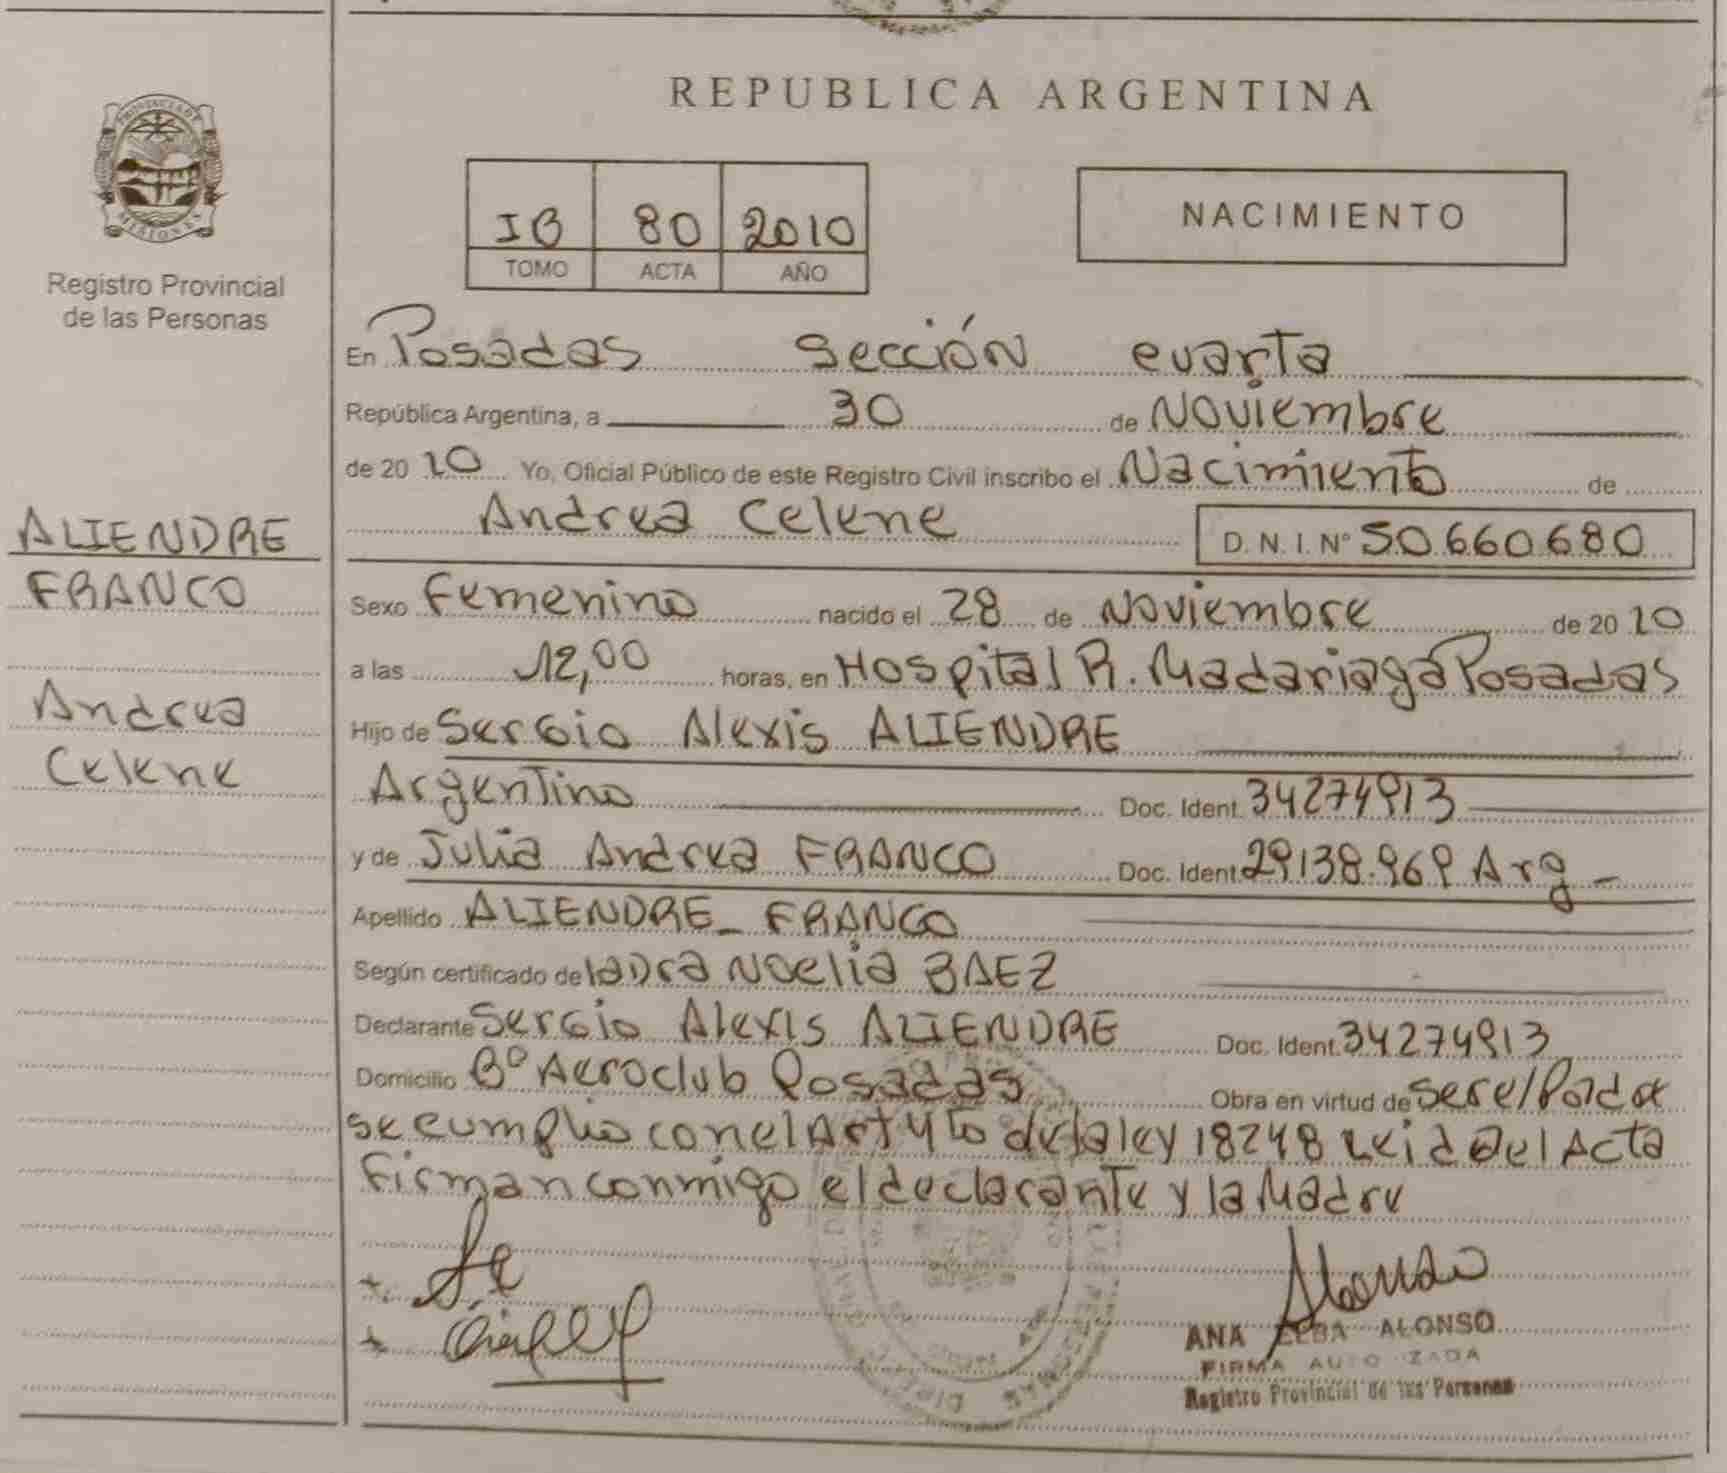 REPUBLICA ARGENTINA
PROVINCIA DE MISIONES
Registro Provincial
de las Personas
80 2010
TOMO ACTA AÑO
NACIMIENTO
En Posadas Sección cuarta
República Argentina, a 30 de Noviembre
de 20 10 Yo, Oficial Público de este Registro Civil inscribo el Nacimiento de
Andrea Celene D.N.I. Nº 50660680
ALIENDRE
FRANCO
Andrea
Celene
Sexo Femenino nacido el 28 de Noviembre de 20 10
a las 12,00 horas, en Hospital R. Madariaga Posadas
Hijo de Sergio Alexis ALIENDRE
Argentino Doc. Ident. 34274913
y de Julia Andrea FRANCO Doc. Ident. 29138.969 Arg_
Apellido ALIENDRE_FRANCO
Según certificado de la Dra Noelia BAEZ
Declarante Sergio Alexis ALIENDRE Doc. Ident. 34274913
Domicilio Bº Aeroclub Posadas Obra en virtud de Ser el Padre
se cumplio con el Art 4to de la ley 18248 Leida el Acta
firman conmigo el declarante y la Madre
ANA ELBA ALONSO
FIRMA AUTORIZADA
Registro Provincial de las Personas